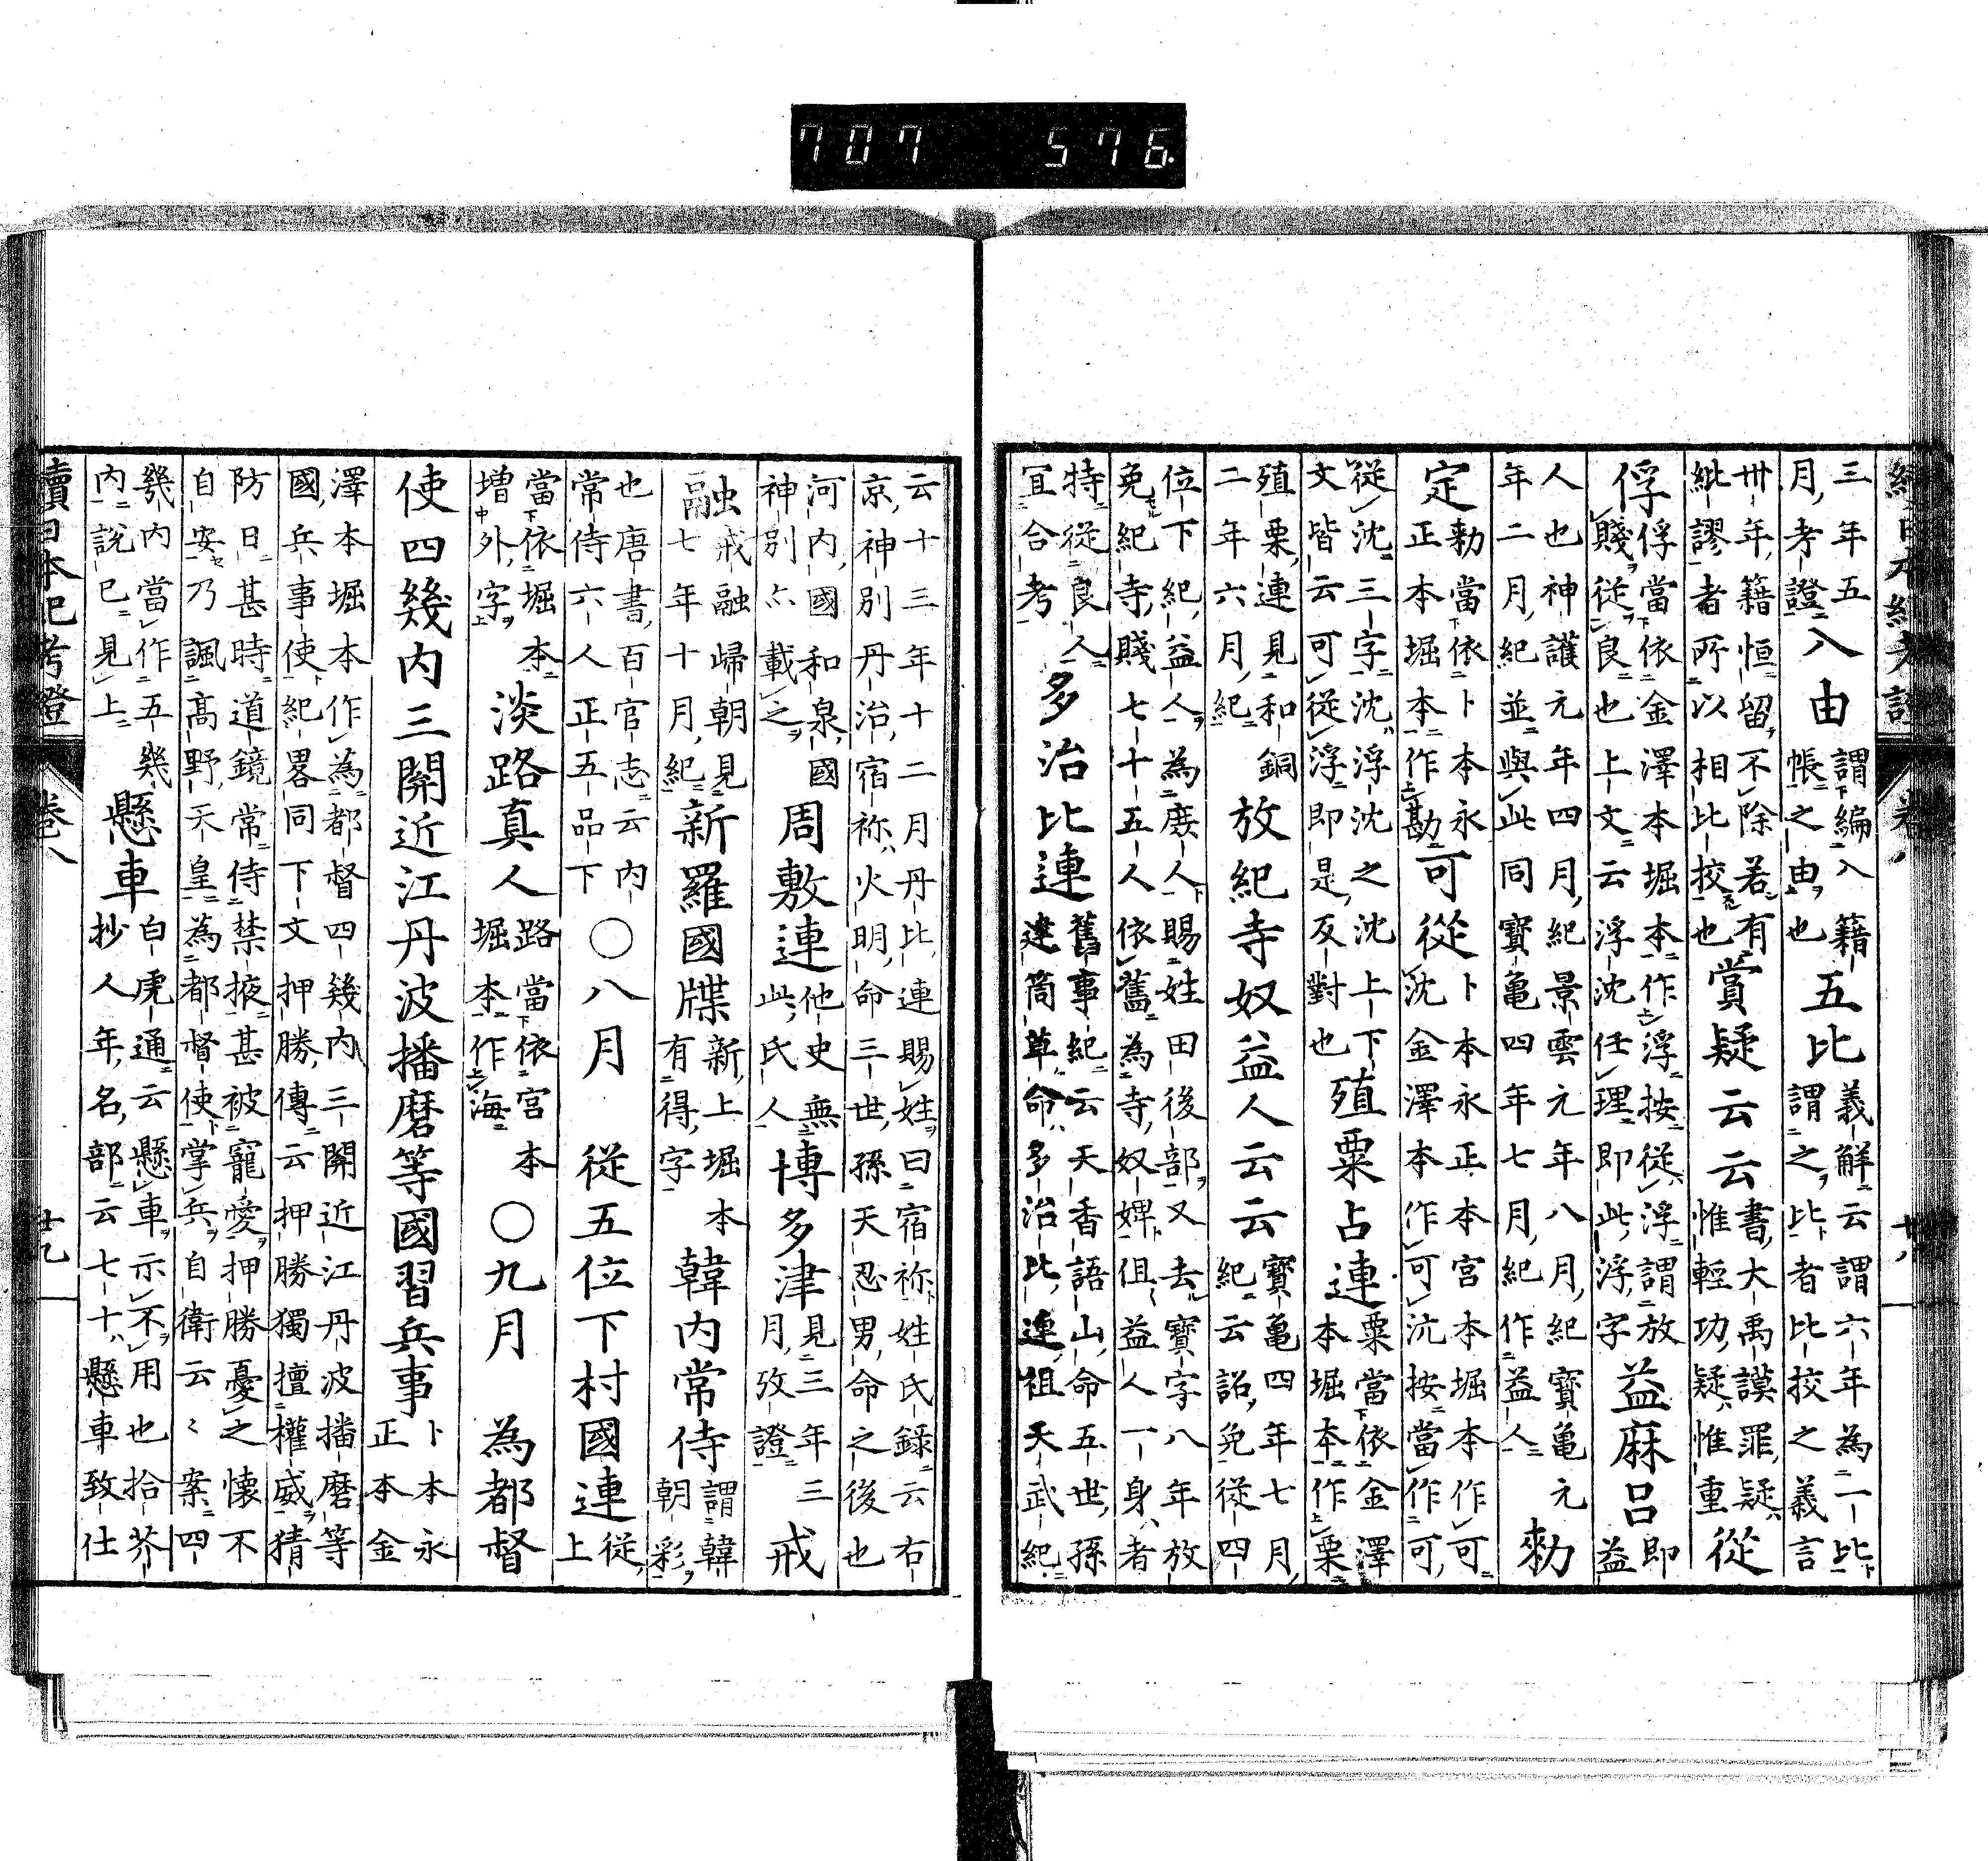 三年五月考證入由謂編入籍帳之由也五比義解云謂六年為一比謂之比比者比挍之義言
卌年籍恒留不除若有紕謬者所以相比挍也賞疑云云書大禹謨罪疑惟輕功疑惟重從
俘俘當依金澤本堀本作浮按從浮謂放賤從良也上文云浮沈任理即此浮字益麻呂即益
人也神護元年四月紀景雲元年八月紀寶亀元年二月紀並與此同寶亀四年七月紀作益人勑
定勑當依卜本永正本堀本作勘可從卜本永正本宮本堀本作可沈金澤本作可沆按當作可
從沈三字沈浮沈之沈上下文皆云可從浮即是反對也殖粟占連粟當依金澤本堀本作栗
殖栗連見和銅二年六月紀放紀寺奴益人云云寶亀四年七月紀云詔免従四
位下紀益人為庶人賜姓田後部又去寶字八年放免紀寺賤七十五人依舊為寺奴婢但益人一身者
特從良人宜合考多治比連舊事紀云天香語山命五世孫建筒草命多治比連祖天武紀
云十三年十二月丹比連賜姓曰宿祢姓氏録云右京神別丹治宿祢火明命三世孫天忍男命之後也
河内國和泉國神別亦載之周敷連他史無此氏人博多津見三年三月攷證戒
融戒融歸朝見七年十月紀新羅國牒新上堀本有得字韓内常侍謂韓朝彩
也唐書百官志云内常侍六人正五品下〇八月從五位下村國連從上
當依堀本増外字淡路真人路當依宮本堀本作海〇九月為都督
使四幾内三關近江丹波播磨等國習兵事卜本永正本金
澤本堀本作為都督四幾内三關近江丹波播磨等國兵事使紀畧同下文押勝傳云押勝獨擅權威猜
防日甚時道鏡常侍禁掖甚被寵愛押勝憂之懐不自安乃諷高野天皇為都督使掌兵自衛云〻案四
幾内當作五幾内説已見上懸車白虎通云懸車示不用也拾芥抄人年名部云七十懸車致仕
續日本紀考證 卷八 廿九
707 576